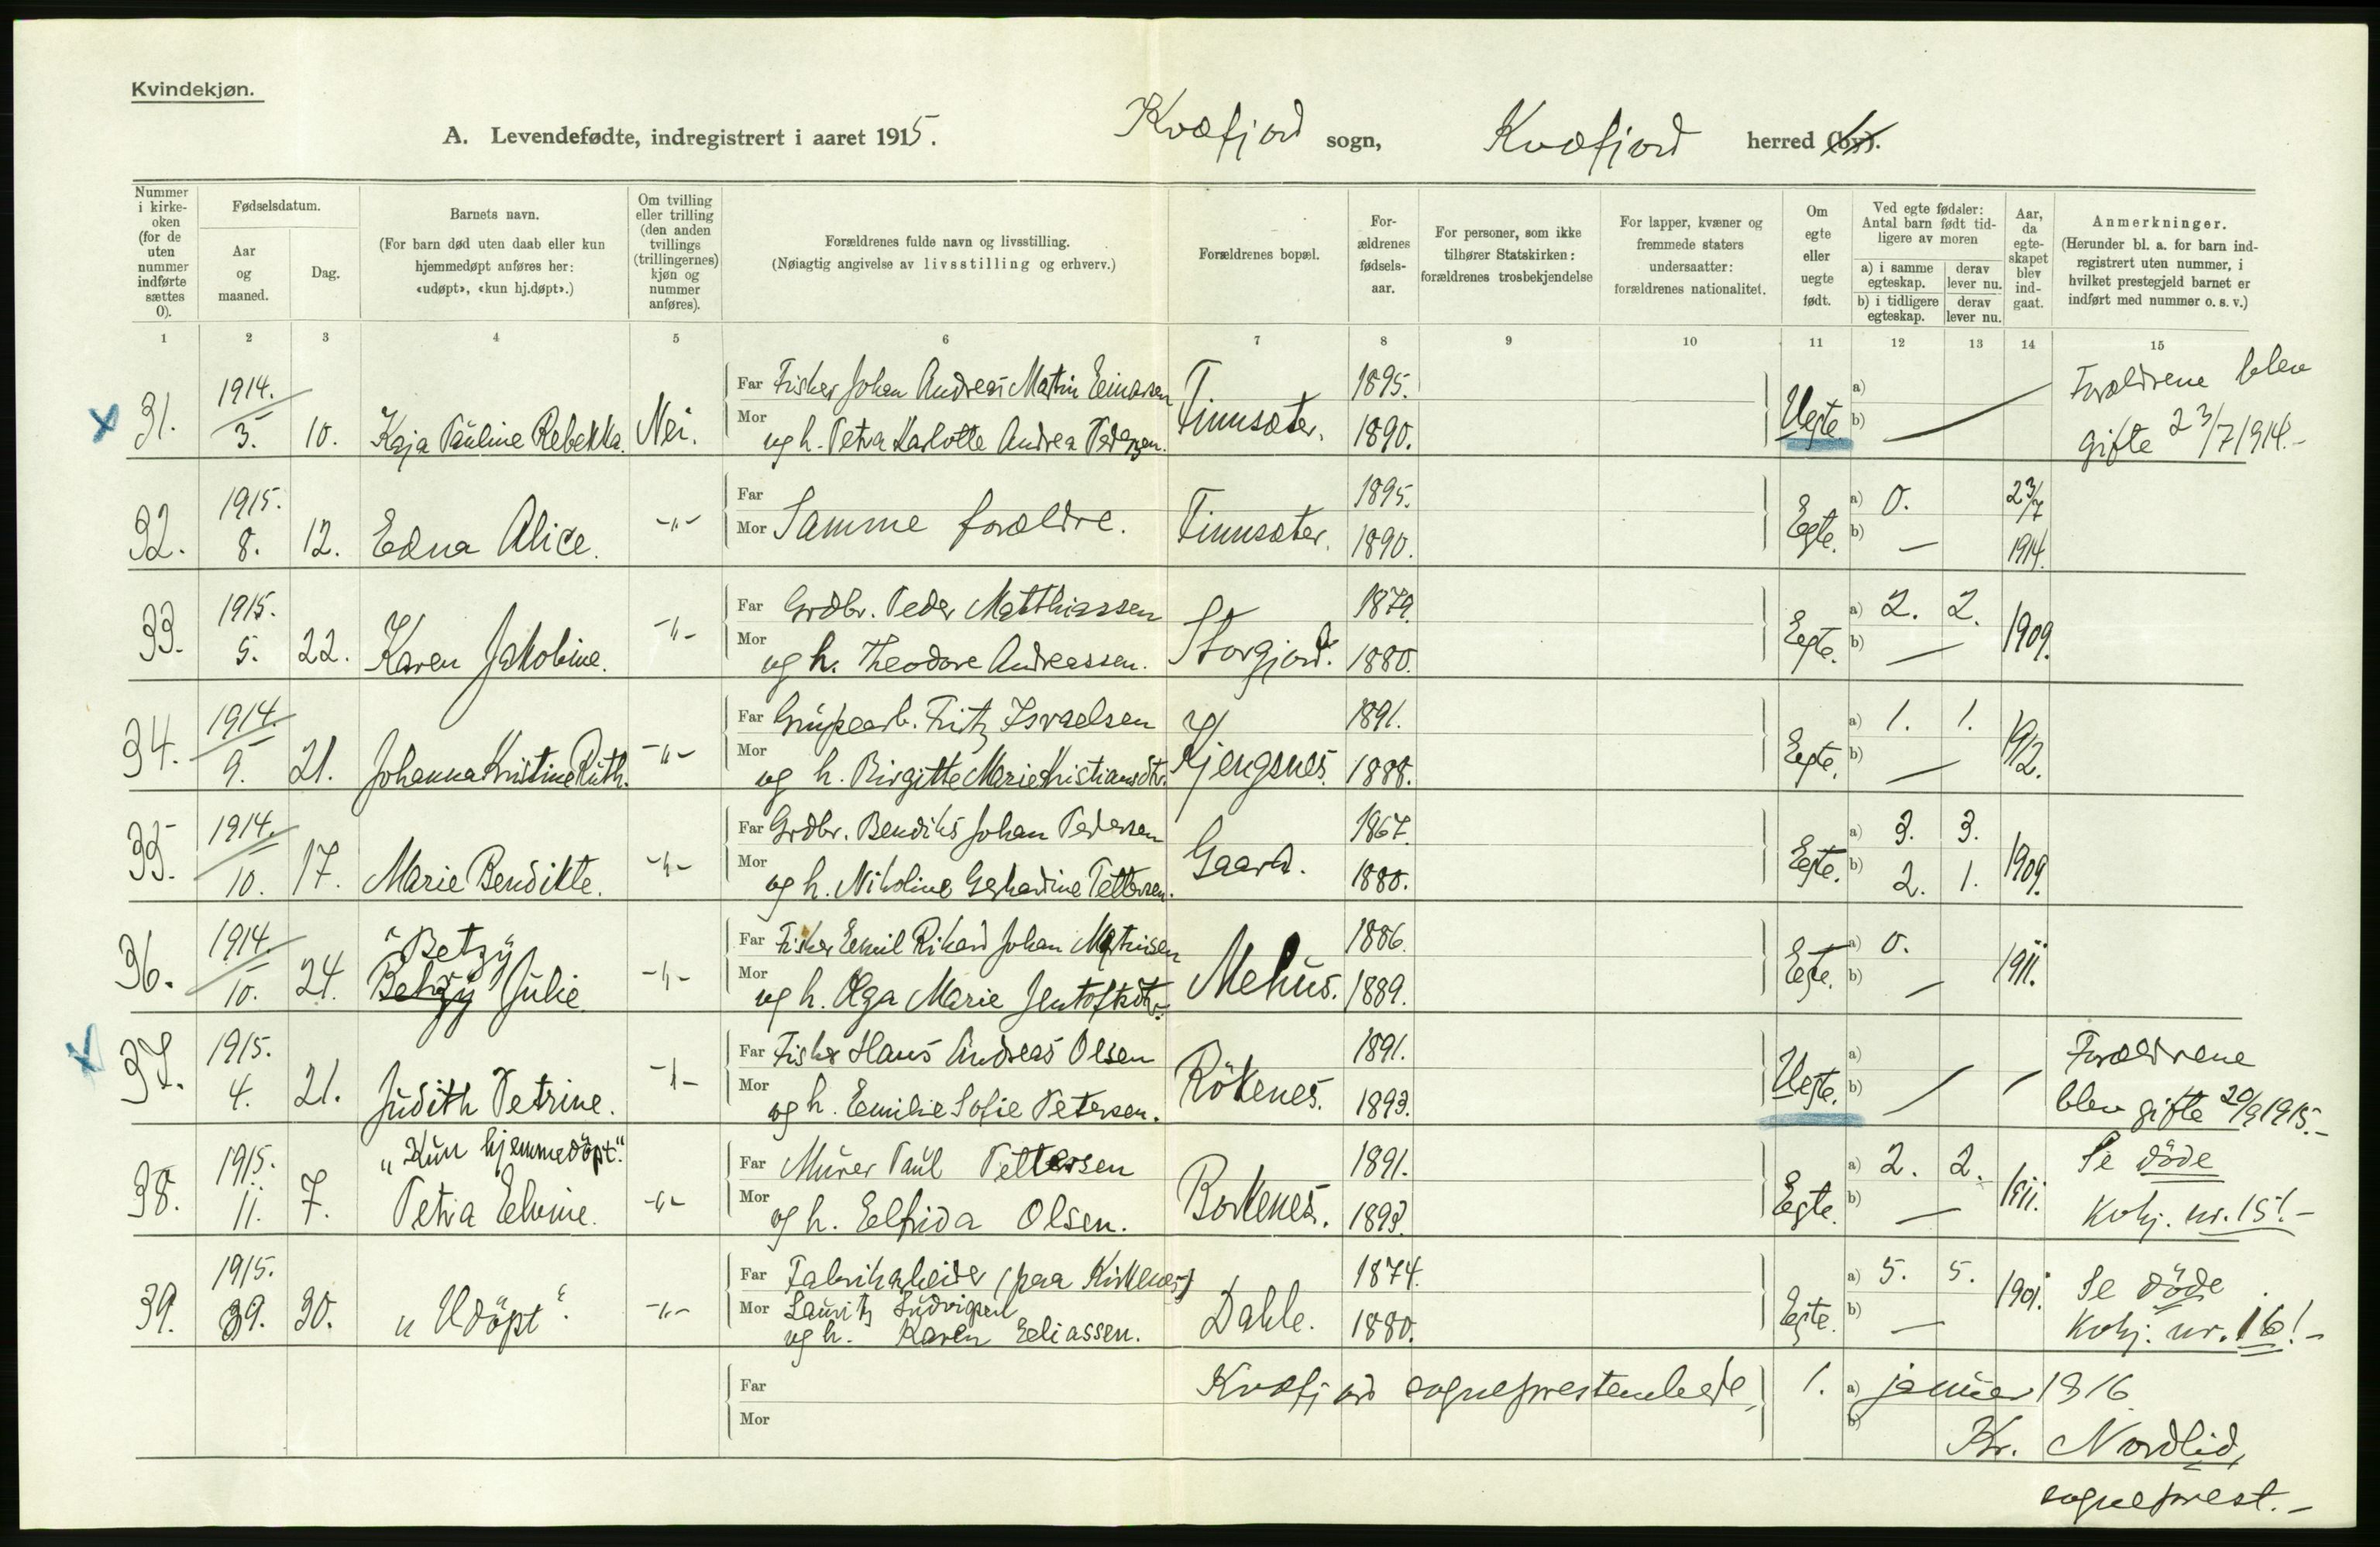 Kvindekjøn.
A. Levendefødte, indregistrert i aaret 1915. Kvæfjord sogn, Kvæfjord herred (by).
Nummer i kirke-oken (for de uten nummer indførte sættes 0).
Fødselsdatum.
Aar og maaned.
Dag.
Barnets navn.
(For barn død uten daab eller kun hjemmedøpt anføres her: «udøpt», «kun hj.døpt».)
Om tvilling eller trilling (den anden tvillings (trillingernes) kjøn og nummer anføres).
Forældrenes fulde navn og livsstilling.
(Nøiagtig angivelse av livsstilling og erhverv.)
Forældrenes bopæl.
For-ældrenes fødsels-aar.
For personer, som ikke tilhører Statskirken: forældrenes trosbekjendelse
For lapper, kvæner og fremmede staters undersaatter: forældrenes nationalitet.
Om egte eller uegte født.
Ved egte fødsler: Antal barn født tid-ligere av moren
a) i samme egteskap.
derav lever nu.
b) i tidligere egteskap.
derav lever nu.
Aar, da egte-skapet blev ind-gaat.
Anmerkninger.
(Herunder bl. a. for barn ind-registrert uten nummer, i hvilket prestegjeld barnet er indført med nummer o. s. v.)
1 2 3 4 5 6 7 8 9 10 11 12 13 14 15
x 31. 1914. 3. 10. Kaja Pauline Rebekka. Nei.
Far Fisker Johan Andreas Martin Einarsen 1895. a) Forældrene blev
Mor og h. Petra Karlotte Andrea Pedersen. Finnsæter. 1890. Uegte. b) gifte 23/7 1914.-
32. 1915. 8. 12. Edna Alice. -"-
Far 1895. a) 0. 23/7
Mor Samme forældre. Finnsæter. 1890. Egte. b) — 1914.
33. 1915. 5. 22. Karen Jakobine. -"-
Far Grdbr. Peder Matthiassen 1879. a) 2. 2.
Mor og h. Theodore Andreassen. Storgjord. 1880. Egte. b) — 1909.
34. 1914. 9. 21. Johanna Kristine Ruth. -"-
Far Grubearb. Fritz Israelsen 1891. a) 1. 1.
Mor og h. Birgitte Marie Kristiansdtr. Gjengsnes. 1888. Egte. b) — 1912.
35. 1914. 10. 17. Marie Bendikte. -"-
Far Grdbr. Bendiks Johan Pedersen 1867. a) 3. 3.
Mor og h. Nikoline Gerhardine Pettersen. Gaara. 1880. Egte. b) 2. 1. 1909.
36. 1914. 10. 24. "Betzy" Betzy Julie. -"-
Far Fisker Emil Rikard Johan Martinsen 1886. a) 0.
Mor og h. Olga Marie Jentoftsdtr. Mehus. 1889. Egte. b) — 1911.
x 37. 1915. 4. 21. Judith Petrine. -"-
Far Fisker Hans Andreas Olsen 1891. a) Forældrene
Mor og h. Emilie Sofie Petersen. Rökenes. 1893. Uegte. b) — — blev gifte 20/9 1915.-
38. 1915. 11. 7. "Kun hjemmedöpt." Petra Elvine. -"-
Far Murer Paul Pettersen 1891. a) 2. 2. Se döde
Mor og h. Elfrida Olsen. Borkenes. 1893. Egte. b) — 1911. Kvkj. nr. 15!-
39. 1915. 9. 30. "Udöpt". -"-
Far Fabrikarbeider (paa Kirkenes) 1874. a) 5. 5. Se döde
Mor Lauritz Ludvigsen
og h. Karen Eliassen. Dahle. 1880. Egte. b) — 1901. Kvkj. nr. 16!-
Far Kvæfjord sogneprestembede, 1. a) januar 1916.
Mor b) Kr. Nordlid,
sogneprest.-